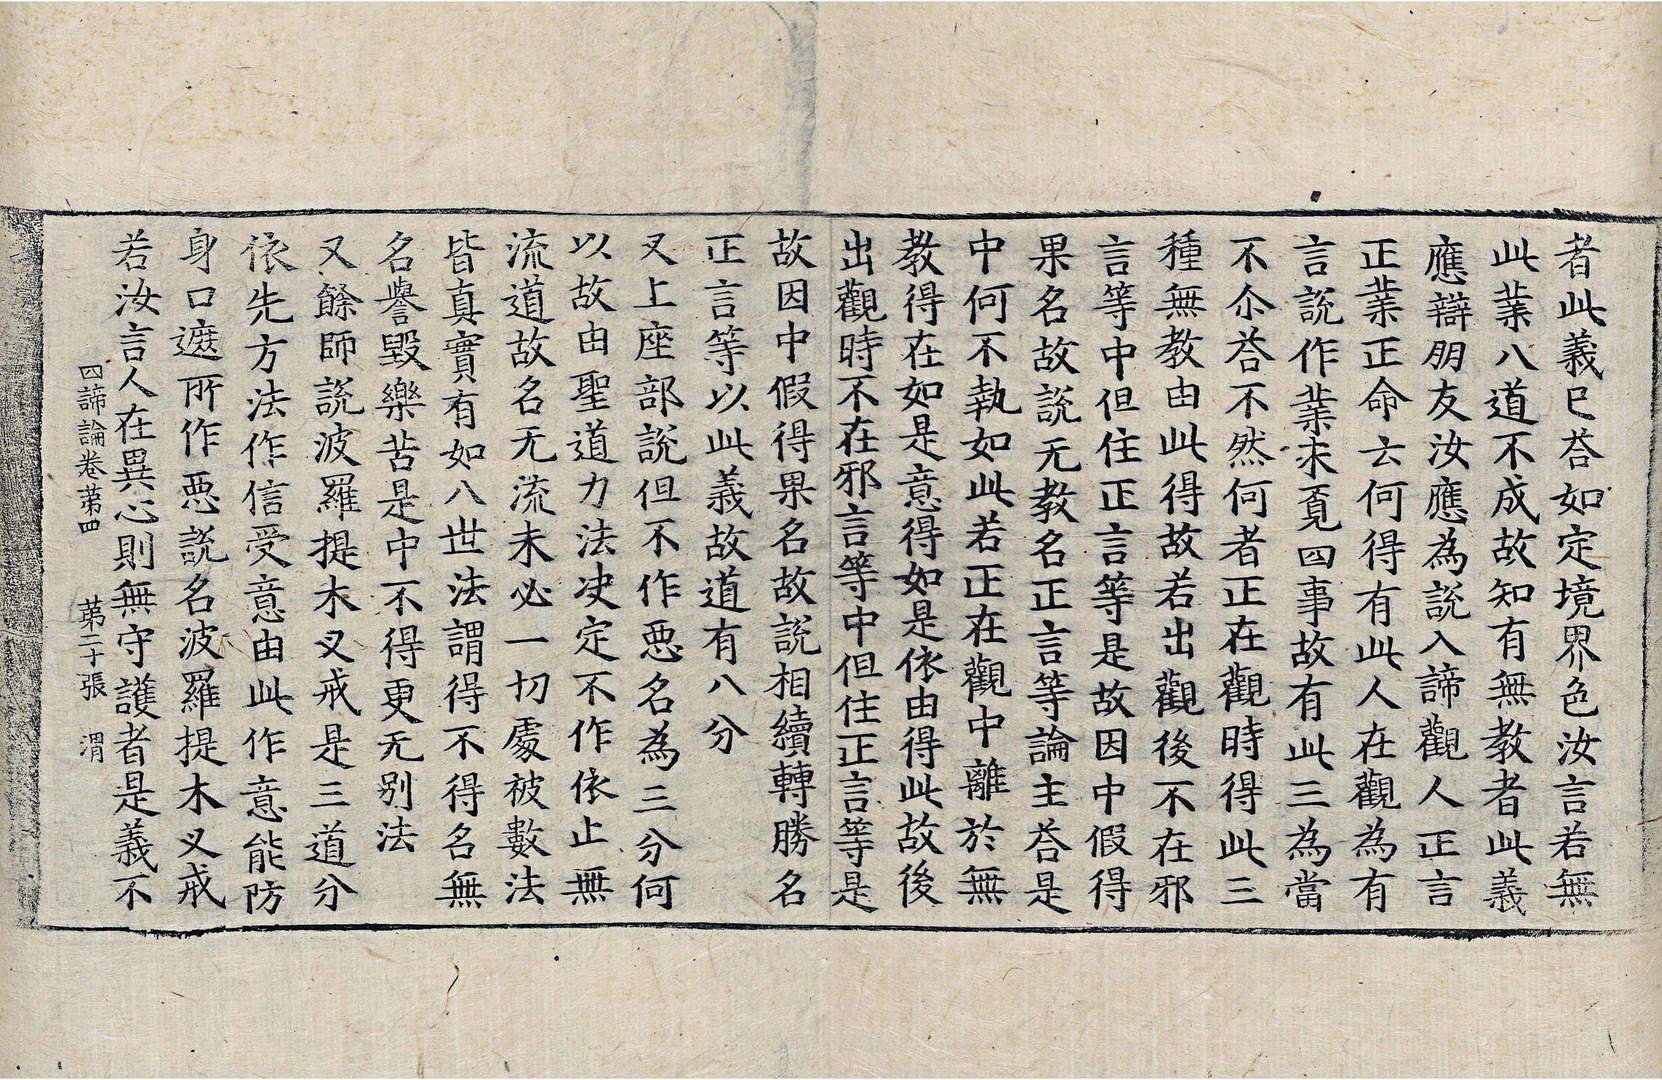 者此義已荅如定境界色汝言若無
此業八道不成故知有無教者此義
應辯朋友汝應為說入諦觀人正言
正業正命云何得有此人在觀為有
言說作業求覔四事故有此三為當
不尒荅不然何者正在觀時得此三
種無教由此得故若出觀後不在邪
言等中但住正言等是故因中假得
果名故說无教名正言等論主荅是
中何不執如此若正在觀中離於無
教得在如是意得如是依由得此故後
出觀時不在邪言等中但住正言等是
故因中假得果名故說相續轉勝名
正言等以此義故道有八分
又上座部說但不作惡名為三分何
以故由聖道力法决定不作依止無
流道故名无流未必一切處被數法
皆真實有如八世法謂得不得名無
名譽毀樂苦是中不得更无别法
又餘師說波羅提木叉戒是三道分
依先方法作信受意由此作意能防
身口遮所作惡說名波羅提木叉戒
若汝言人在異心則無守護者是義不
四諦論卷苐四　苐二十張　渭